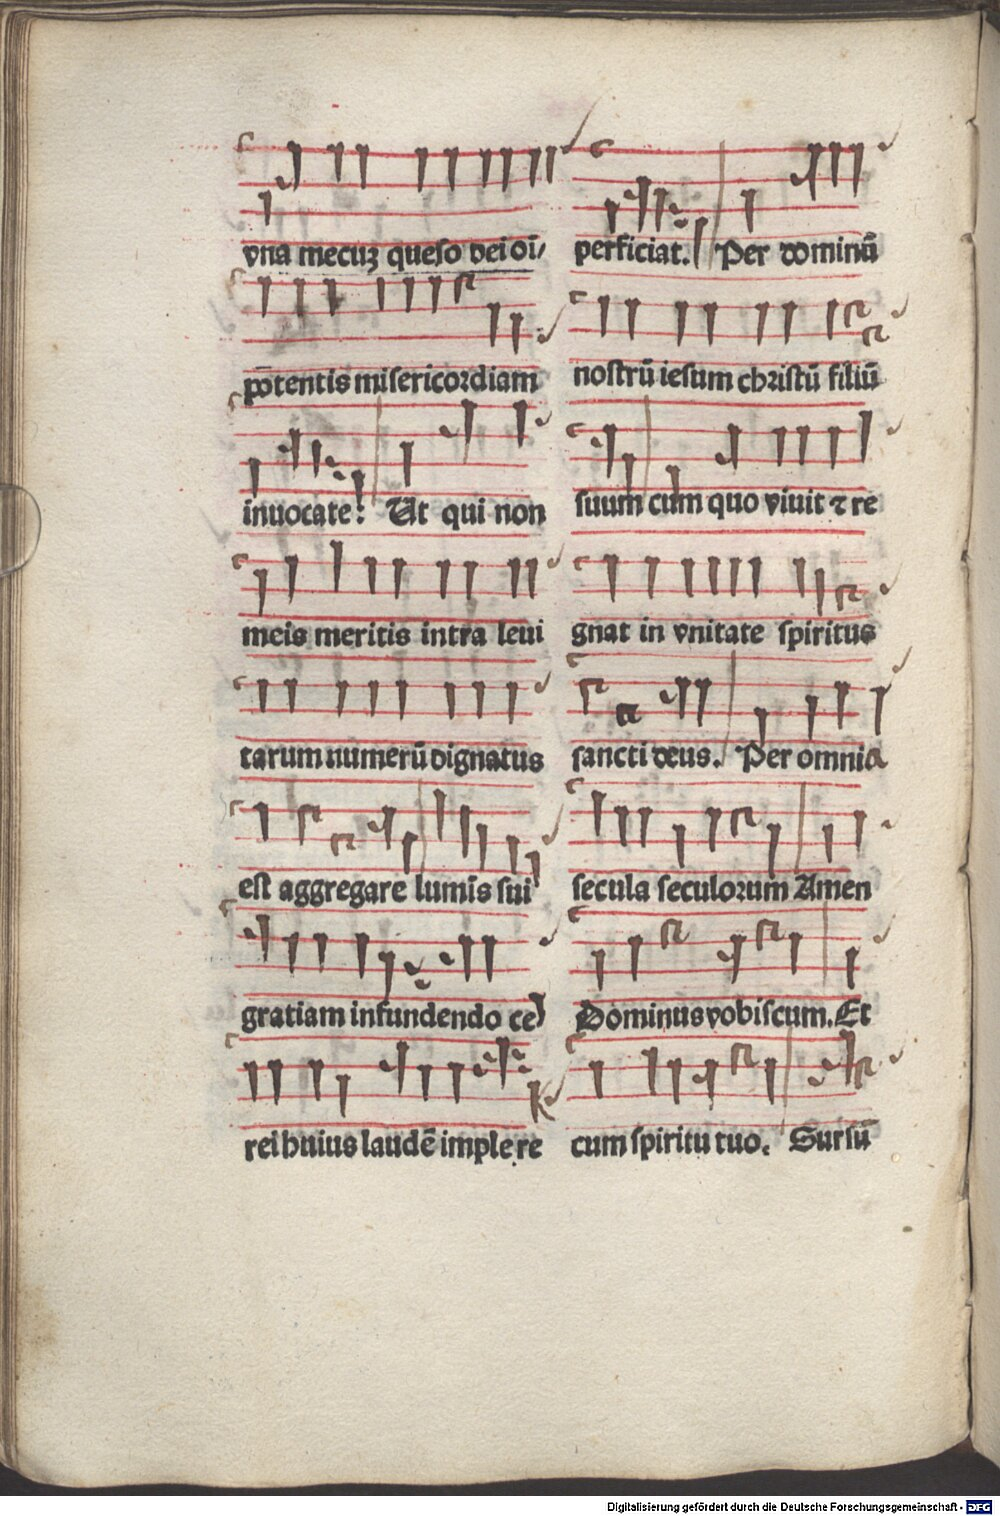 vna mecuꝫ queſo dei oi/
põtentis miſericoꝛdiam
inuocate: Ut qui non
meis meritis intra leui
tarum numerũ dignatus
eſt aggregare lumĩs ſui
gratiam infundendo ce
rei huius laudẽ implere
perficiat. Per dominũ
noſtrũ ieſum chꝛiſtũ filiũ
ſuum cum quo viuit ⁊ re
gnat in vnitate ſpiritus
ſancti deus. Per omnia
ſecula ſeculoꝛum Amen
Dominus vobiſcum. Et
cum ſpiritu tuo. Surſũ
Digitalisierung gefördert durch die Deutsche Forschungsgemeinschaft - DFG